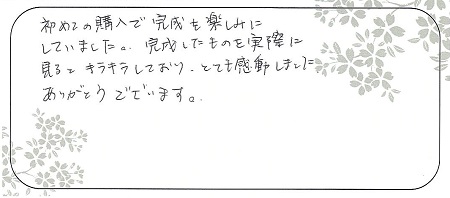 初めての購入で完成を楽しみに
していました。完成したものを実際に
見るとキラキラしており、とても感動しました
ありがとうございます。